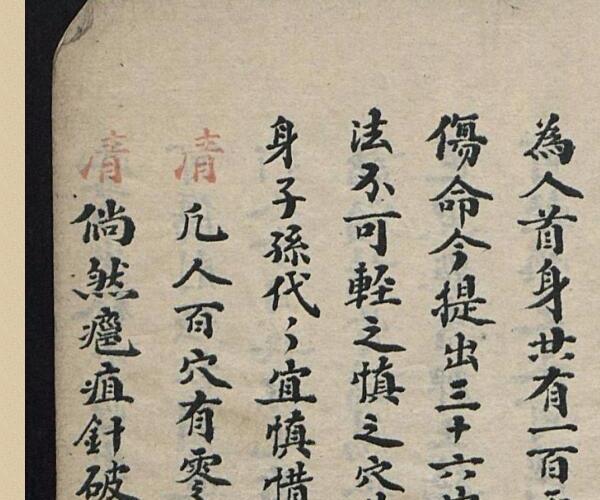 為人首身共有一百
傷命今提出三十六
法不可輕之慎之穴
身子孫代々宜慎惜
清 凢人百穴有零
清 倘然瘟疽針破